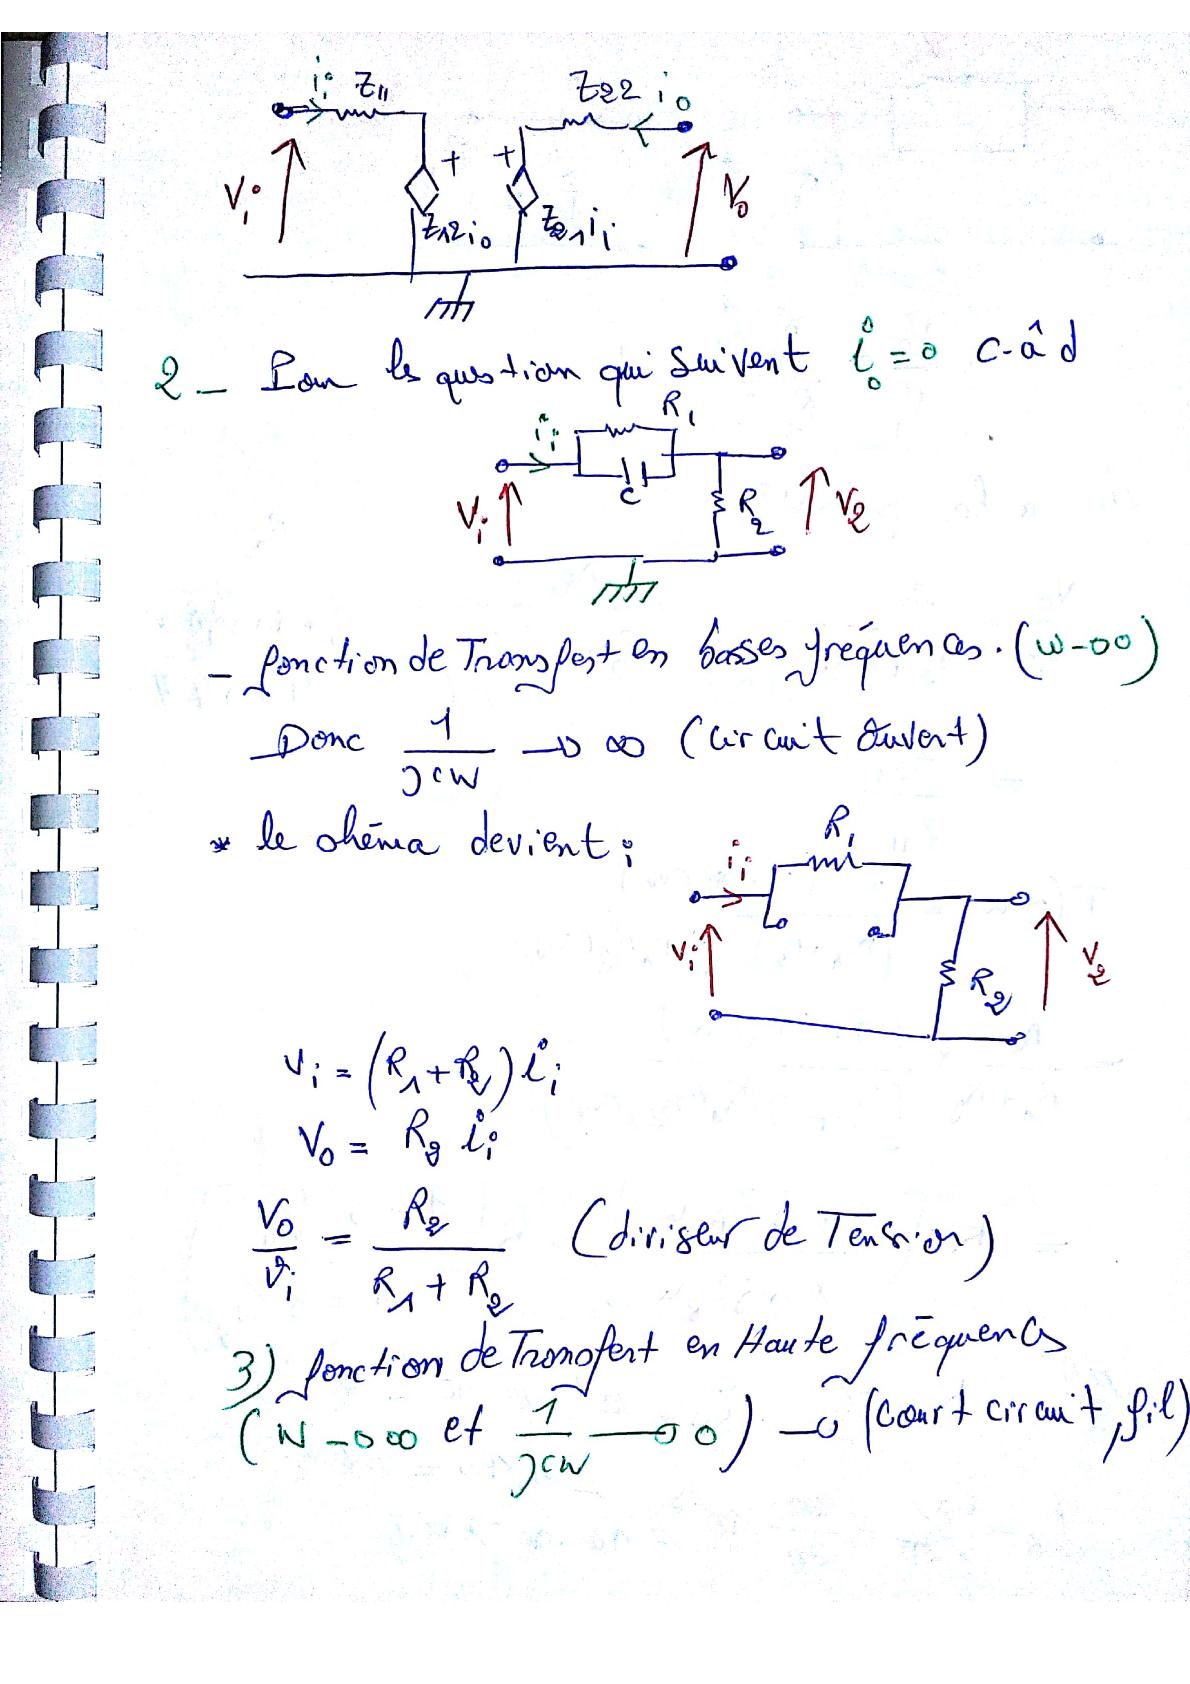 i_i Z_11 Z_22 i_0
V_i + + V_0
Z_12 i_0 Z_21 i_i
2 - Pour les question qui suivent i_0 = 0 c-à-d
R_1
i_i
C
V_i R_2 V_2
- fonction de Transfert en basses fréquences. (w→0)
Donc 1/jcw → ∞ (circuit ouvert)
* le shéma devient :
R_1
i_i
V_i R_2 V_2
V_i = (R_1 + R_2) i_i
V_0 = R_2 i_i
V_0/V_i = R_2/(R_1 + R_2) (diviseur de Tension)
3) fonction de Transfert en Haute fréquences
(w → ∞ et 1/jcw → 0) → (court circuit, fil)